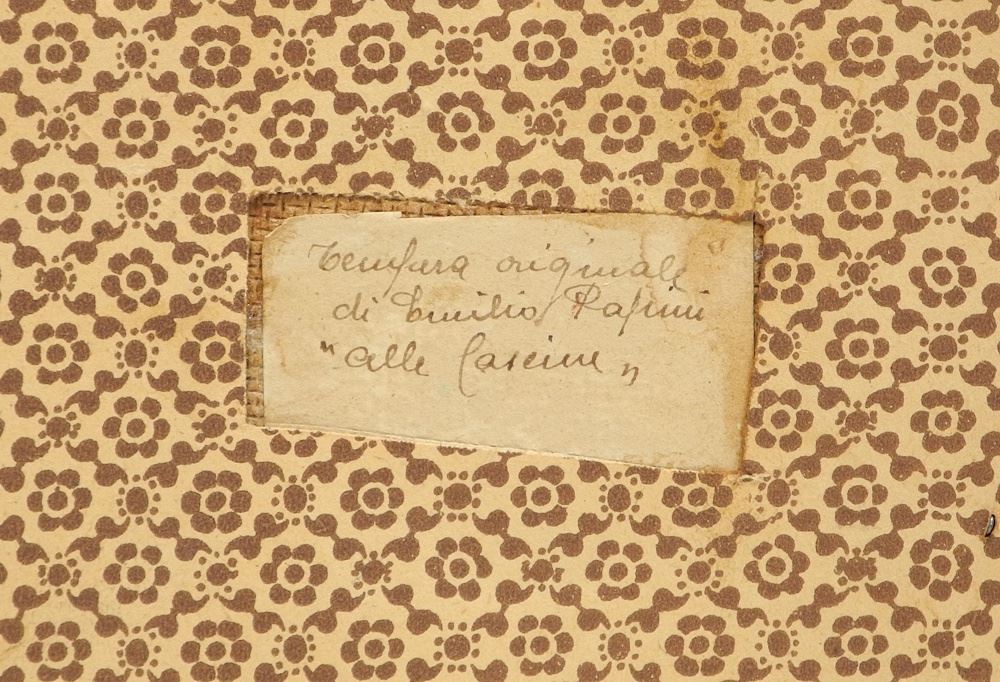 Tempera originale
di Emilio Pasini
"alle Cascine"